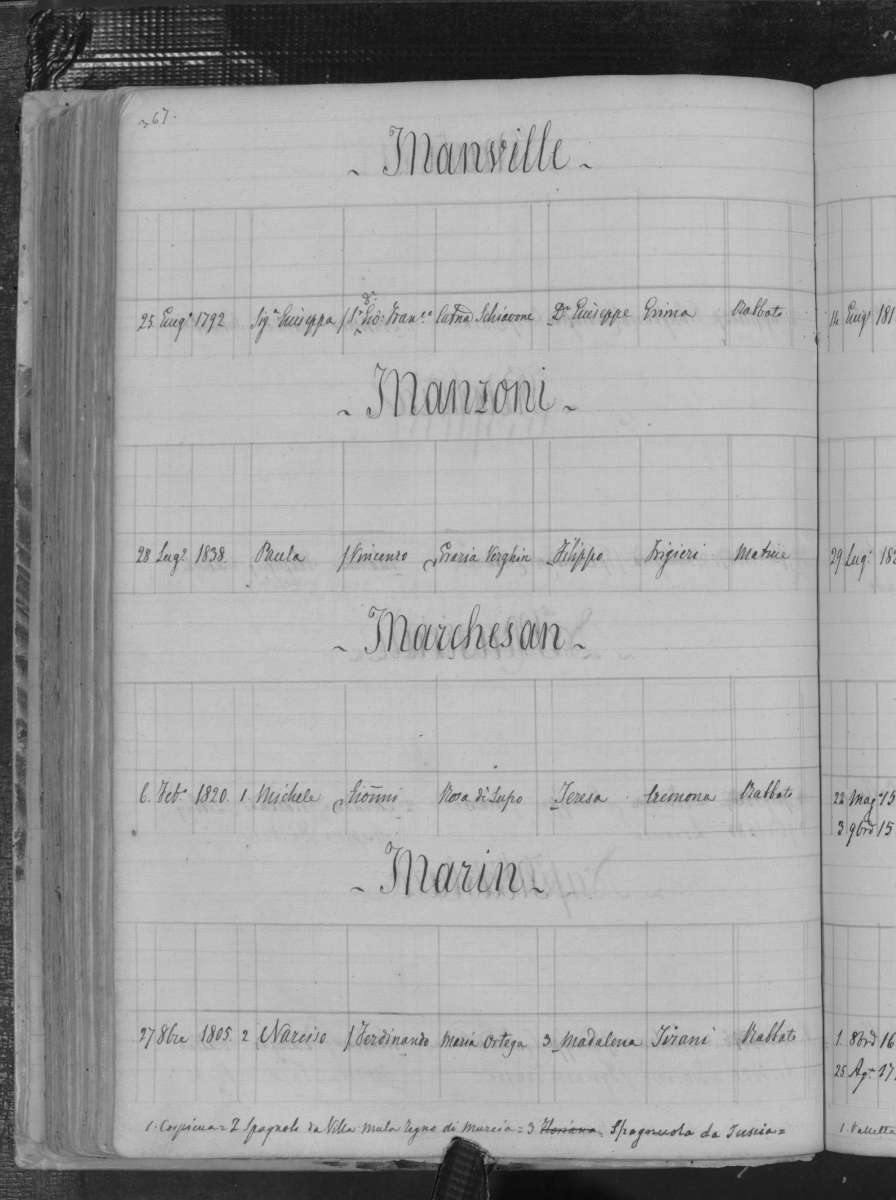 367.
~ Manville ~
25 Eug° 1792 Sig.ª Giuseppa f S.r D.r Gio: Fran.co Cat̄na Schiavone D.r Giuseppe Grima Rabbato
14 Eug° 181
~ Manzoni ~
28 Lug° 1838. Paola f Vincenzo Grazia Verghin Filippo Frigieri Matrice
29 Lug° 182
~ Marchesan ~
6. Feb° 1820. 1. Michele Gioñni Rosa di Lupo Teresa Cremona Rabbato
22 Mag° 15
3 9bre 15
~ Marin ~
27 8bre 1805. 2 Narciso f Ferdinando Maria Ortega 3 Madalena Tirani Rabbato
1. 8bre 16
25 Ag° 17
1. Cospicua = 2 Spagnolo da Villa mula Regno di Murcia = 3 Spagnuola da =
1. Valletta